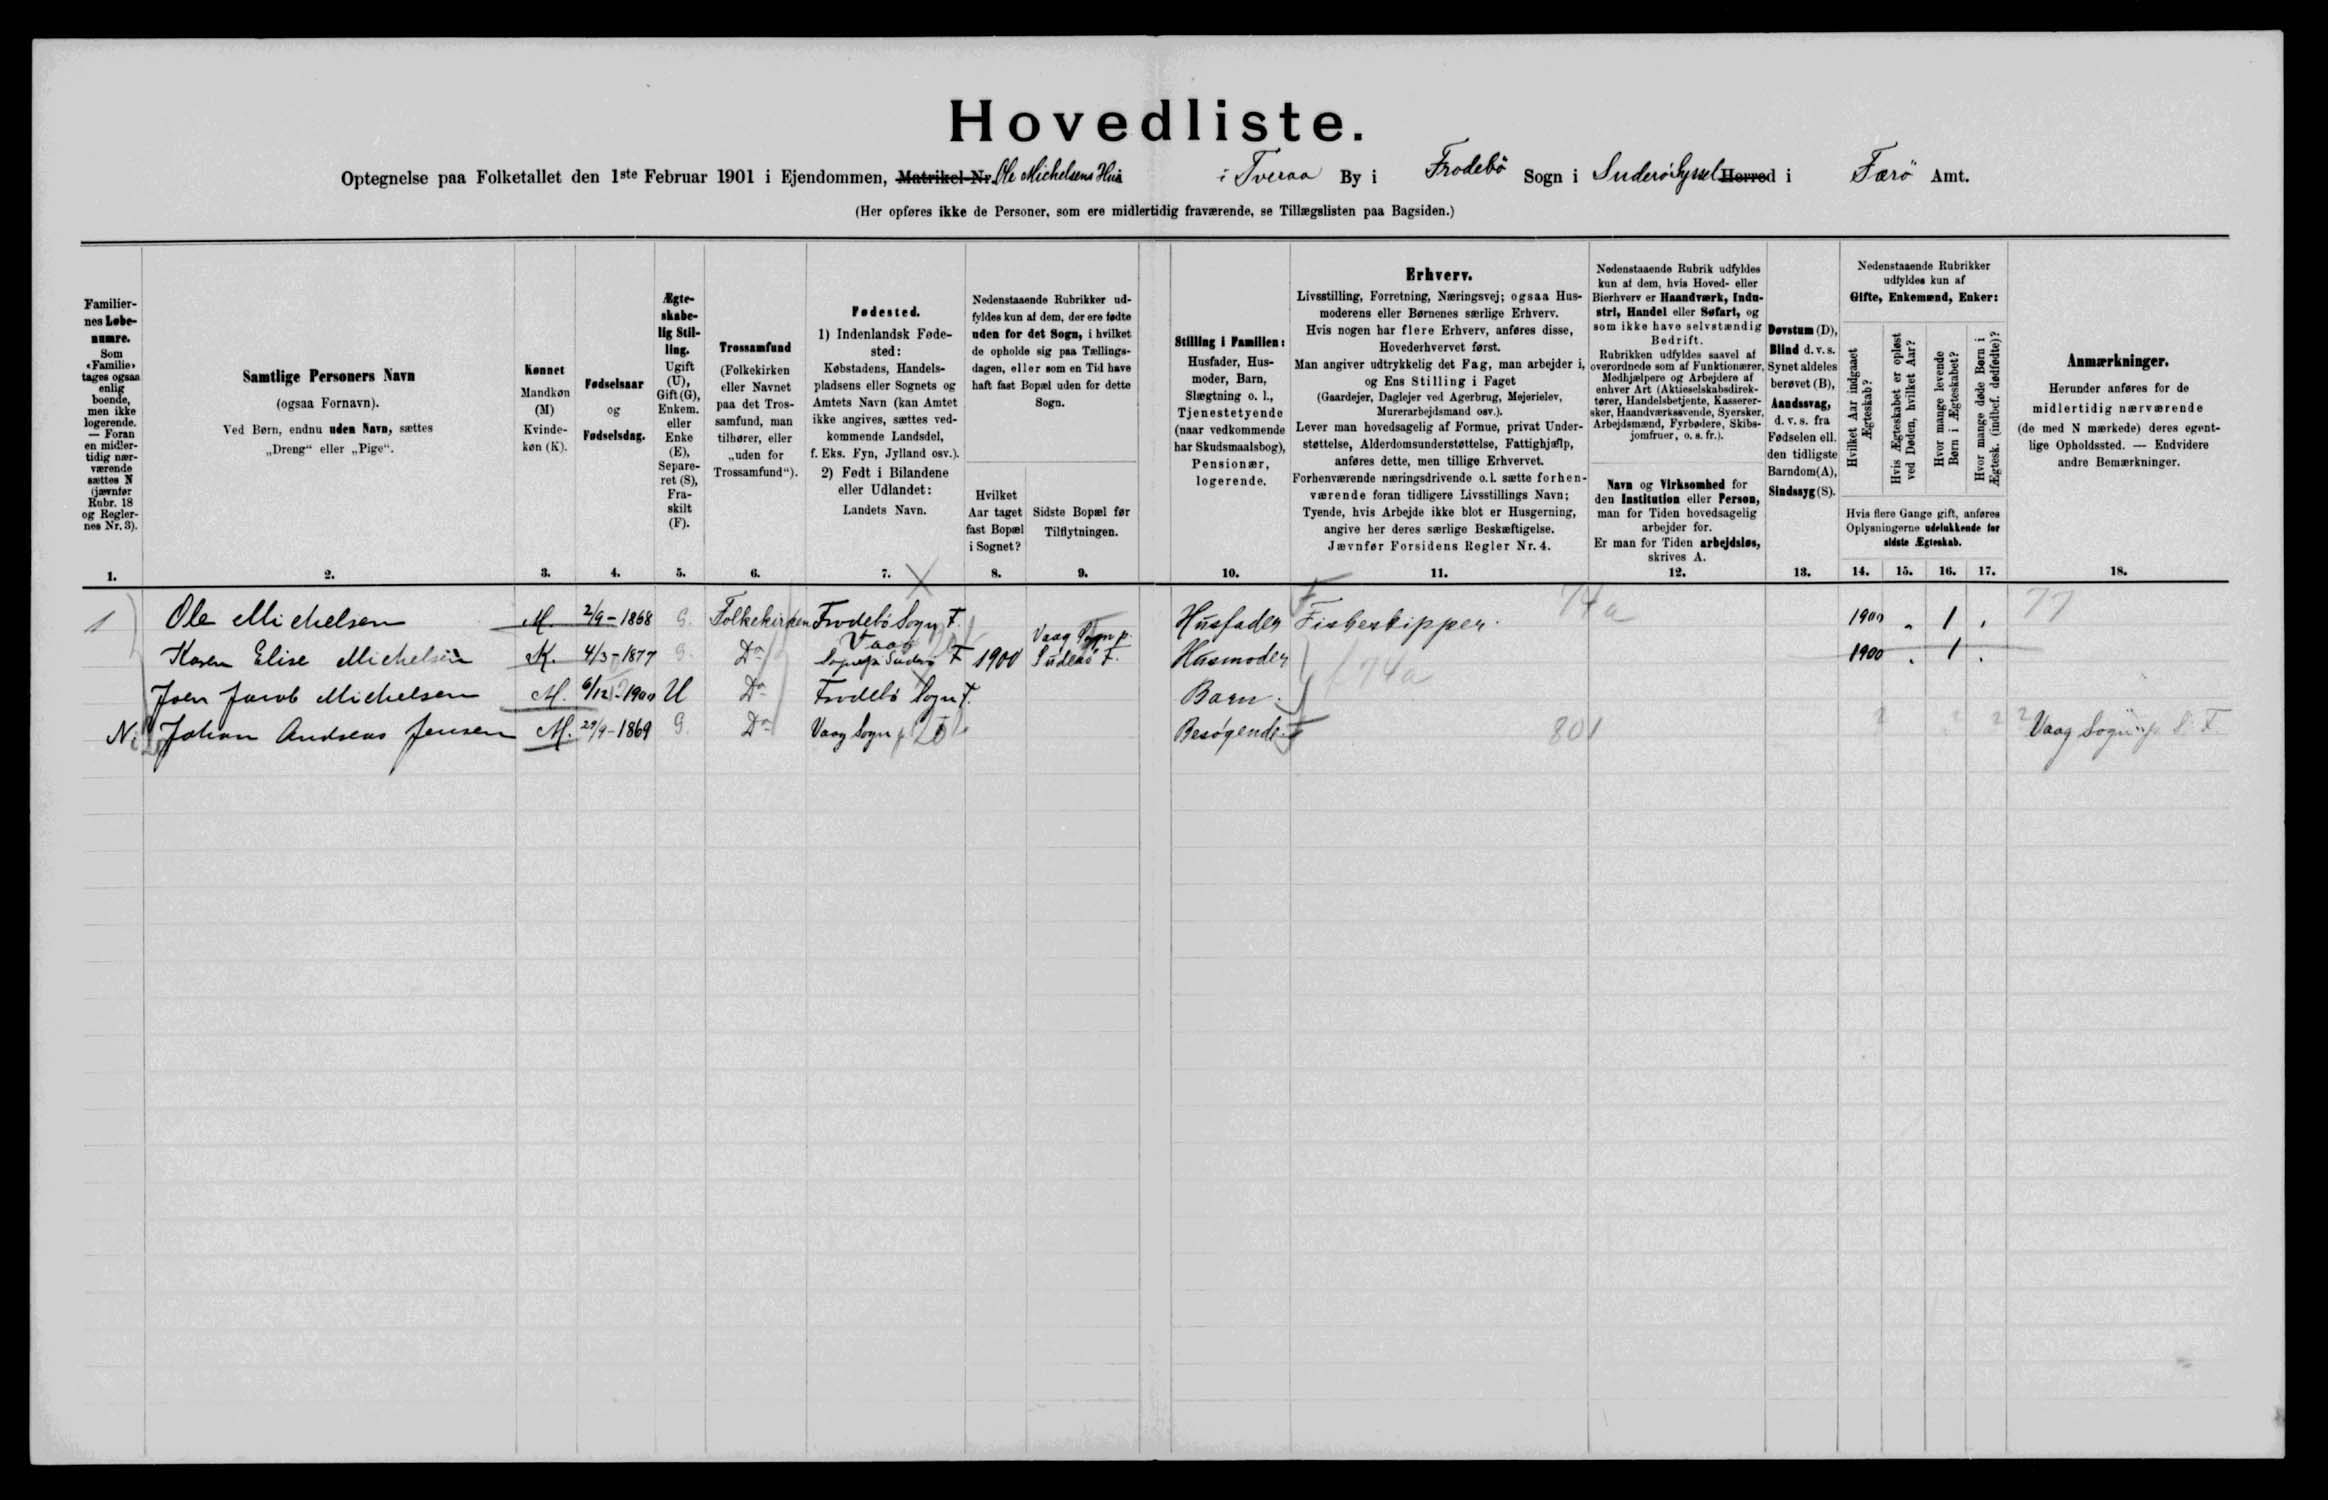 Hovedliste.
Optegnelse paa Folketallet den 1ste Februar 1901 i Ejendommen, Matrikel-Nr. Ole Michelsens Hus i Tveraa By i Frodebö Sogn i Suderö Syssel Herred i Færö Amt.
(Her opføres ikke de Personer, som ere midlertidig fraværende, se Tillægslisten paa Bagsiden.)
Familier-
nes Løbe-
numre.
Som
«Familie»
tages ogsaa
enlig
boende,
men ikke
logerende.
— Foran
en midler-
tidig nær-
værende
sættes N
(jævnfør
Rubr. 18
og Regler-
nes Nr. 3).
1.
Samtlige Personers Navn
(ogsaa Fornavn).
Ved Børn, endnu uden Navn, sættes
„Dreng“ eller „Pige“.
2.
Kønnet
Mandkøn
(M)
Kvinde-
køn (K).
3.
Fødselsaar
og
Fødselsdag.
4.
Ægte-
skabe-
lig Stil-
ling.
Ugift
(U),
Gift (G),
Enkem.
eller
Enke
(E),
Separe-
ret (S),
Fra-
skilt
(F).
5.
Trossamfund
(Folkekirken
eller Navnet
paa det Tros-
samfund, man
tilhører, eller
„uden for
Trossamfund“).
6.
Fødested.
1) Indenlandsk Føde-
sted:
Købstadens, Handels-
pladsens eller Sognets og
Amtets Navn (kan Amtet
ikke angives, sættes ved-
kommende Landsdel,
f. Eks. Fyn, Jylland osv.).
2) Født i Bilandene
eller Udlandet:
Landets Navn.
7.
Nedenstaaende Rubrikker ud-
fyldes kun af dem, der ere fødte
uden for det Sogn, i hvilket
de opholde sig paa Tællings-
dagen, eller som en Tid have
haft fast Bopæl uden for dette
Sogn.
Hvilket
Aar taget
fast Bopæl
i Sognet?
8.
Sidste Bopæl før
Tilflytningen.
9.
Stilling i Familien:
Husfader, Hus-
moder, Barn,
Slægtning o. l.,
Tjenestetyende
(naar vedkommende
har Skudsmaalsbog),
Pensionær,
logerende.
10.
Erhverv.
Livsstilling, Forretning, Næringsvej; ogsaa Hus-
moderens eller Børnenes særlige Erhverv.
Hvis nogen har flere Erhverv, anføres disse,
Hovederhvervet først.
Man angiver udtrykkelig det Fag, man arbejder i,
og Ens Stilling i Faget
(Gaardejer, Daglejer ved Agerbrug, Mejerielev,
Murerarbejdsmand osv.).
Lever man hovedsagelig af Formue, privat Under-
støttelse, Alderdomsunderstøttelse, Fattighjælp,
anføres dette, men tillige Erhvervet.
Forhenværende næringsdrivende o. l. sætte forhen-
værende foran tidligere Livsstillings Navn;
Tyende, hvis Arbejde ikke blot er Husgerning,
angive her deres særlige Beskæftigelse.
Jævnfør Forsidens Regler Nr. 4.
11.
Nedenstaaende Rubrik udfyldes
kun af dem, hvis Hoved- eller
Bierhverv er Haandværk, Indu-
stri, Handel eller Søfart, og
som ikke have selvstændig
Bedrift.
Rubrikken udfyldes saavel af
overordnede som af Funktionærer,
Medhjælpere og Arbejdere af
enhver Art (Aktieselskabsdirek-
tører, Handelsbetjente, Kasserer-
sker, Haandværkssvende, Syersker,
Arbejdsmænd, Fyrbødere, Skibs-
jomfruer, o. s. fr.).
Navn og Virksomhed for
den Institution eller Person,
man for Tiden hovedsagelig
arbejder for.
Er man for Tiden arbejdsløs,
skrives A.
12.
Døvstum (D),
Blind d. v. s.
Synet aldeles
berøvet (B),
Aandssvag,
d. v. s. fra
Fødselen ell.
den tidligste
Barndom (A),
Sindssyg (S).
13.
Nedenstaaende Rubrikker
udfyldes kun af
Gifte, Enkemænd, Enker:
Hvilket Aar indgaaet
Ægteskab?
Hvis Ægteskabet er opløst
ved Døden, hvilket Aar?
Hvor mange levende
Børn i Ægteskabet?
Hvor mange døde Børn i
Ægtesk. (indbef. dødfødte)?
Hvis flere Gange gift, anføres
Oplysningerne udelukkende for
sidste Ægteskab.
14. 15. 16. 17.
Anmærkninger.
Herunder anføres for de
midlertidig nærværende
(de med N mærkede) deres egent-
lige Opholdssted. — Endvidere
andre Bemærkninger.
18.
1 Ole Michelsen M. 2/9-1868 G. Folkekirken Frodebö Sogn F. Husfader Fiskeskipper. 74a 1900 „ 1 . 77
Karen Elise Michelsen K. 4/3-1877 G. Do Vaag Sogn p. Suderö F 1900 Vaag Sogn p. Suderö F. Husmoder 74a 1900 . 1 .
Joen Jacob Michelsen M. 6/12-1900 U Do Frodebö Sogn F. Barn.
N. Johan Andreas Jensen M. 29/9-1869 G. Do Vaag Sogn p Besøgende 801 ? ? ? ? Vaag Sogn p. S. F.